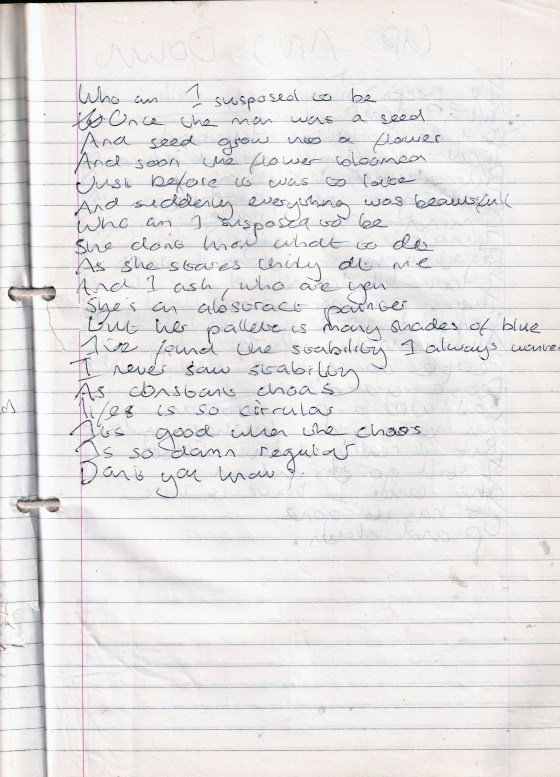 Who am I susposed to be
Once the man was a seed
And seed grow into a flower
And soon the flower bloomed
Just before it was to late
And suddenly everything was beautifull
Who am I susposed to be
She dont know what to do
As she stares at me
And I ask, who are you
She's an abstract painter
but her pallete is many shades of blue
I've found the stability I always wanted
I never saw stability
As constant choas
Lifes is so circular
Its good when the chaos
Is so damn regular
Dont you know?
UP AND DOWN
Up and down.